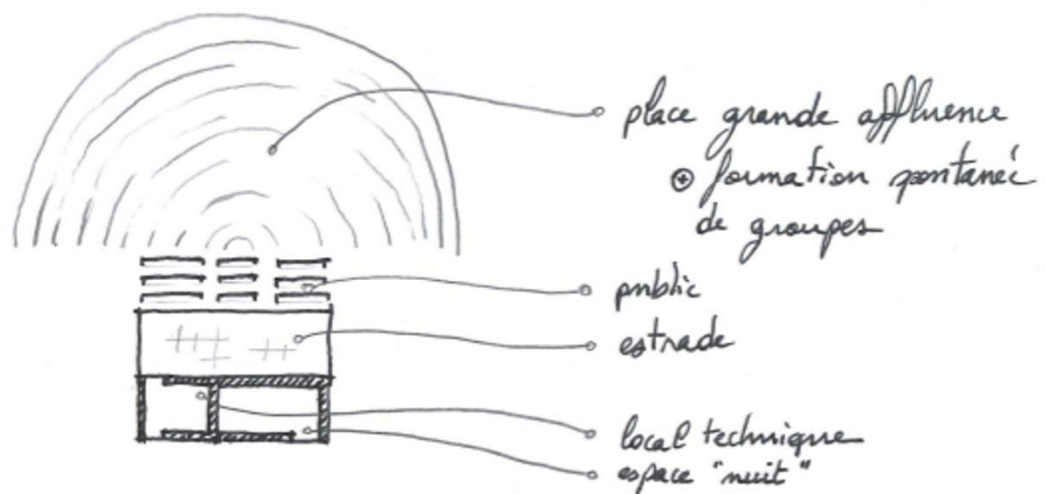 place grande affluence
⊕ formation spontaneé
de groupes
public
estrade
local technique
espace "nuit"